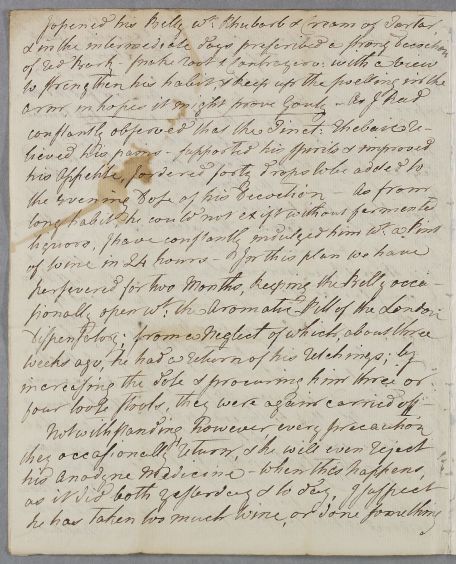 I opened his Belly wt. Rhubarb & Cream of Tartar
& in the intermediate days prescribed a strong Decoction
of Red Bark - Snake root & Contrayerva: with a view
to strengthen his habit & keep up the swelling in the
arm, in hopes it might prove Gouty - As I had
constantly observed that the Tinct: Thebaic re-
lieved his pains - supported his spirits & improved
his appetite, I ordered forty drops to be added to
the Evening Dose of his Decoction - As from
long habit he could not exist without fermented
liquors, I have constantly indulged him wt. a Pint
of Wine in 24 hours - & for this plan we have
persevered for two Months, keeping the Belly occa-
sionally open wt. the Aromatic Pill of the London
Dispensatory; from a Neglect of which, about three
weeks ago, he had a return of his retchings; by
increasing the Dose & procuring him three or
four loose stools, they were again carried off -
Notwithstanding however every precaution
they occasionally return, & he will even reject
his Anodyne Medicine - when this happens,
as it did both yesterday & to day, I suspect
he has taken too much Wine, or done something